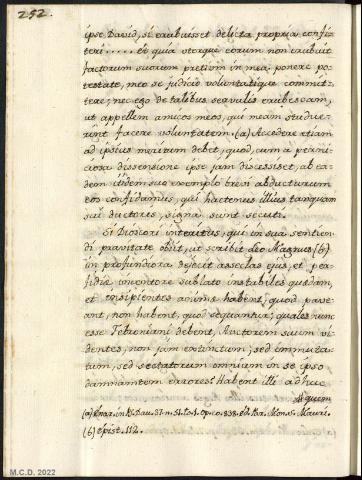 252.
ipse David, si erubuisset delicta propria confi-
teri ..... Et quia uterque eorum non erubuit
factorum suorum pretium in mea ponere po-
testate, meo se judicio voluntatique committ-
ere; nec ego de talibus servulis erubescam,
ut appellem amicos meos, qui meam studue-
runt facere voluntatem. (a) Accedere etiam
ad ipsius meritum debet, quod, cum a perni-
ciosa dissensione ipse jam discessisset, ab ea-
dem itidem suo exemplo brevi abducturum
eos confidamus, qui hactenus illius tanquam
sui ductoris, signa sunt secuti.
Si Dioscori interitus, qui in sua sentien-
di pravitate obiit, ut scribit Leo Magnus (b)
in profundiora dejecit asseclas ejus, et per-
fidiæ inventore sublato instabiles quidam,
et insipientes animi habent, quod pave-
ant, non habent, quod sequantur; quales nunc
esse Tetroniani debent, Auctorem suum vi-
dentes, non jam extinctum; sed immuta-
tum, sed sectatorum omnium in se ipso
damnantem errores? Habent illi adhuc
quem
(a) Enar. in Ps. 37. n. 51. to. 1. Op. co. 838. edit. Par. Mon. S. Mauri.
(b) Epist. 112.
M.C.D. 2022